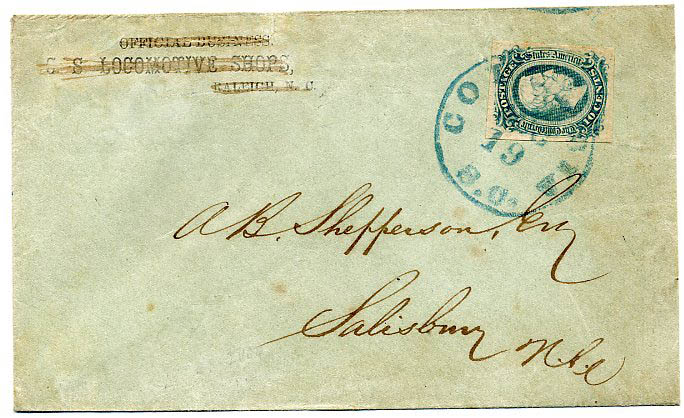 OFFICIAL BUSINESS.
C. S. LOCOMOTIVE SHOPS,
RALEIGH, N. C.
POSTAGE
The Confederate States of America
TEN CENTS
CO
19
S.C.
A.B. Shepperson, Esq
Salisbury
N.C.